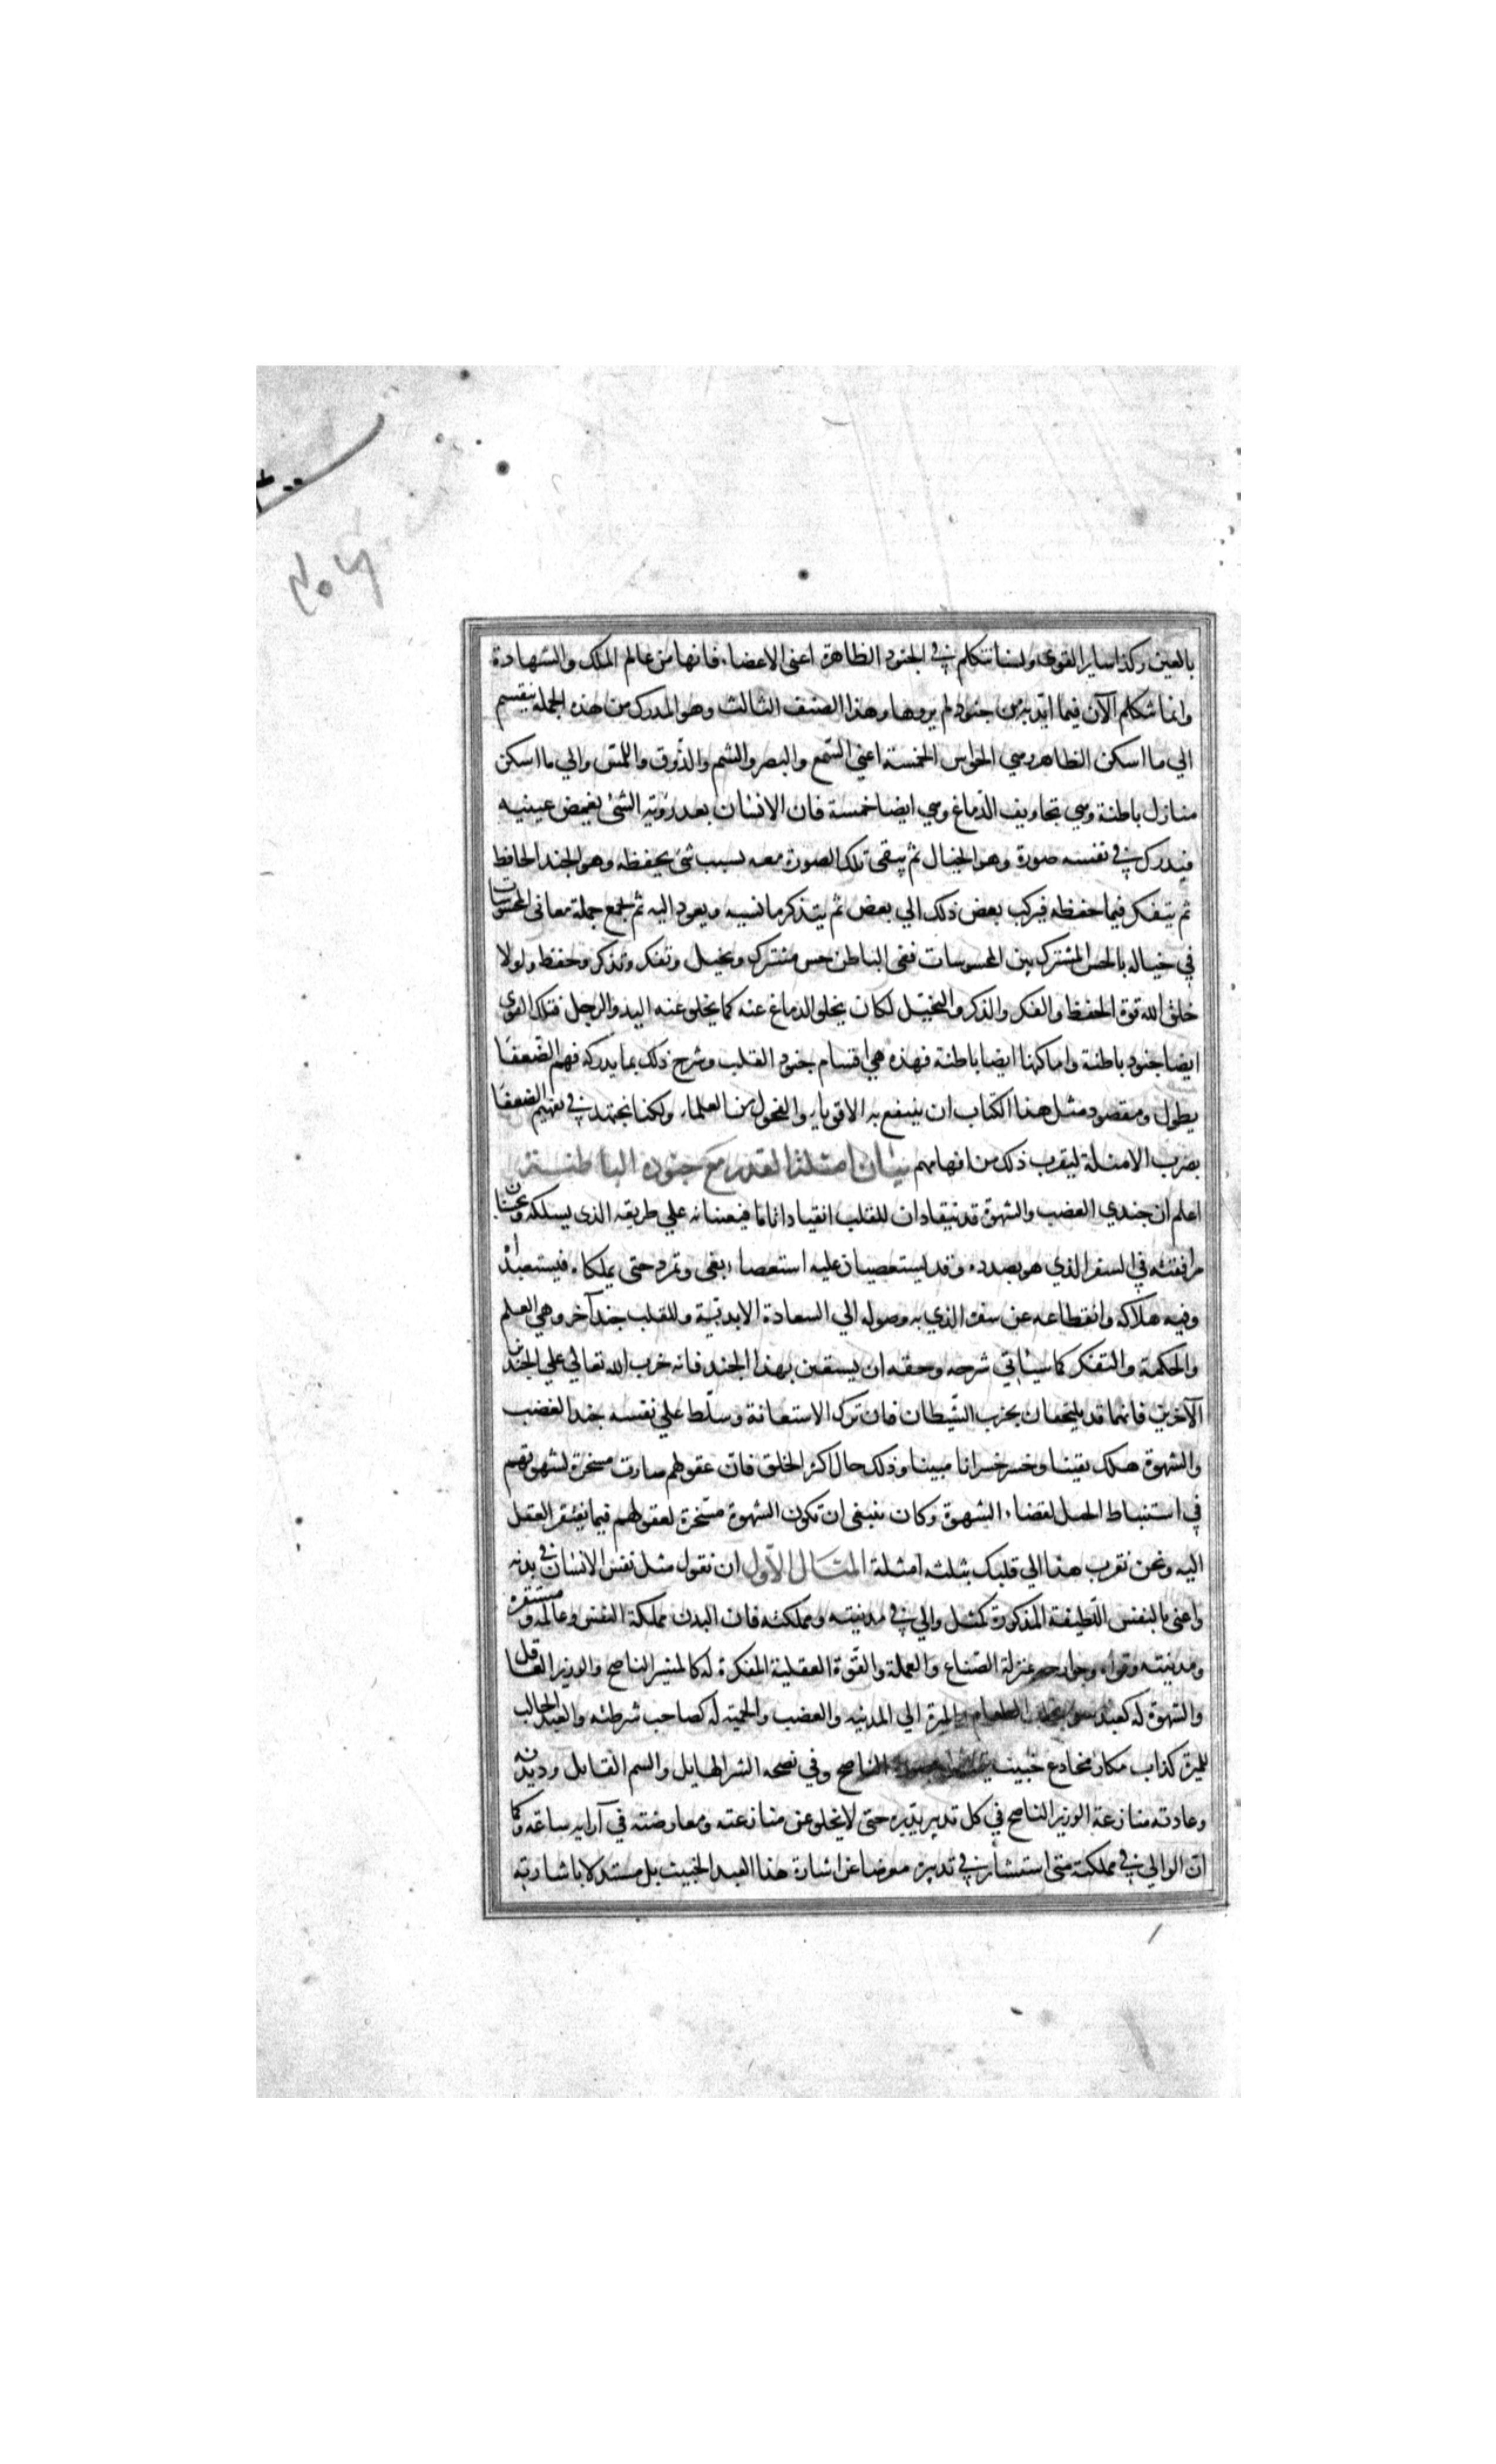 بالعين وكذا ساير القوى ولسنا نتكلم في الجنود الظاهرة اعنى الاعضاء فانها من عالم الملك والشهادة
وانما نتكلم الآن فيما ايد به من جنود لم يروها وهذا الصنف الثالث وهو المدرك من هذه الجملة ينقسم
الي ما اسكن الظاهر وهي الحواس الخمسة اعني السمع والبصر والشم والذوق واللمس والي ما اسكن
منازل باطنة وهي تجاويف الدماغ وهي ايضا خمسة فان الانسان بعد رؤية الشئ يغمض عينيه
فيدرك في نفسه صورة وهو الخيال ثم يبقى تلك الصورة معه بسبب شئ يحفظه وهو الجند الحافظ
ثم يتفكر فيما حفظه فيركب بعض ذلك الي بعض ثم يتذكر ما نسيه ويعود اليه ثم يجمع جملة معانى المحسوسات
في خياله بالحس المشترك بين المحسوسات ففى الباطن حس مشترك وتخيل وتفكر وتذكر وحفظ ولولا
خلق الله قوة الحفظ والفكر والذكر والتخيل لكان يخلو الدماغ عنه كما يخلو عنه اليد والرجل فتلك القوى
ايضا جنود باطنة واماكنها ايضا باطنة فهذه هي اقسام جنود القلب وشرح ذلك بما يدركه فهم الضعفا
يطول ومقصود مثل هذا الكتاب ان ينتفع به الاقويا والفحول من العلماء ولكنا نجتهد في تفهيم الضعفا
بضرب الامثلة ليقرب ذلك من افهامهم بيان امثلة القلب مع جنوده الباطنة
اعلم ان جندي الغضب والشهوة قد ينقادان للقلب انقيادا تاما فيعينانه علي طريقه الذى يسلكه ويحسنان
مرافقته في السفر الذي هو بصدده وقد يستعصيان عليه استعصاء بغى وتمرد حتى يملكاه فيستعبداه
وفيه هلاكه وانقطاعه عن سفره الذي به وصوله الي السعادة الابدية وللقلب جند آخر وهي العلم
والحكمة والتفكر كما سيأتي شرحه وحقه ان يستعين بهذا الجند فانه حزب الله تعالي علي الجندين
الآخرين فانهما قد يلتحقان بحزب الشيطان فان ترك الاستعانة وسلط علي نفسه جند الغضب
والشهوة هلك يقينا وخسر خسرانا مبينا وذلك حال اكثر الخلق فان عقولهم صارت مسخرة لشهوتهم
في استنباط الحيل لقضاء الشهوة وكان ينبغى ان تكون الشهوة مسخرة لعقولهم فيما يفتقر العقل
اليه ونحن نقرب هذا الي قلبك بثلثه امثلة المثال الاول ان نقول مثل نفس الانسان في بدنه
واعنى بالنفس اللطيفة المذكورة كمثل والي في مدينته ومملكته فان البدن مملكة النفس وعالمه ومستقره
ومدينته وقواه وجوارحه بمنزلة الصناع والعملة والقوة العقلية المفكرة له كالمشير الناصح والوزير العاقل
والشهوة له كعبد سوء يجلب الطعام والميرة الي المدينه والغضب والحمية له كصاحب شرطته والعبد الجالب
للميرة كذاب مكار مخادع خبيث الناصح وفي نصحه الشر الهايل والسم القاتل وديدنه
وعادته منازعة الوزير الناصح في كل تدبير يدبره حتى لا يخلو عن منازعته ومعارضته في آرايه ساعة وكما
ان الوالي في مملكته متى استشار في تدبيره معرضا عن اشارة هذا العبد الخبيث بل مستدلا باشارته